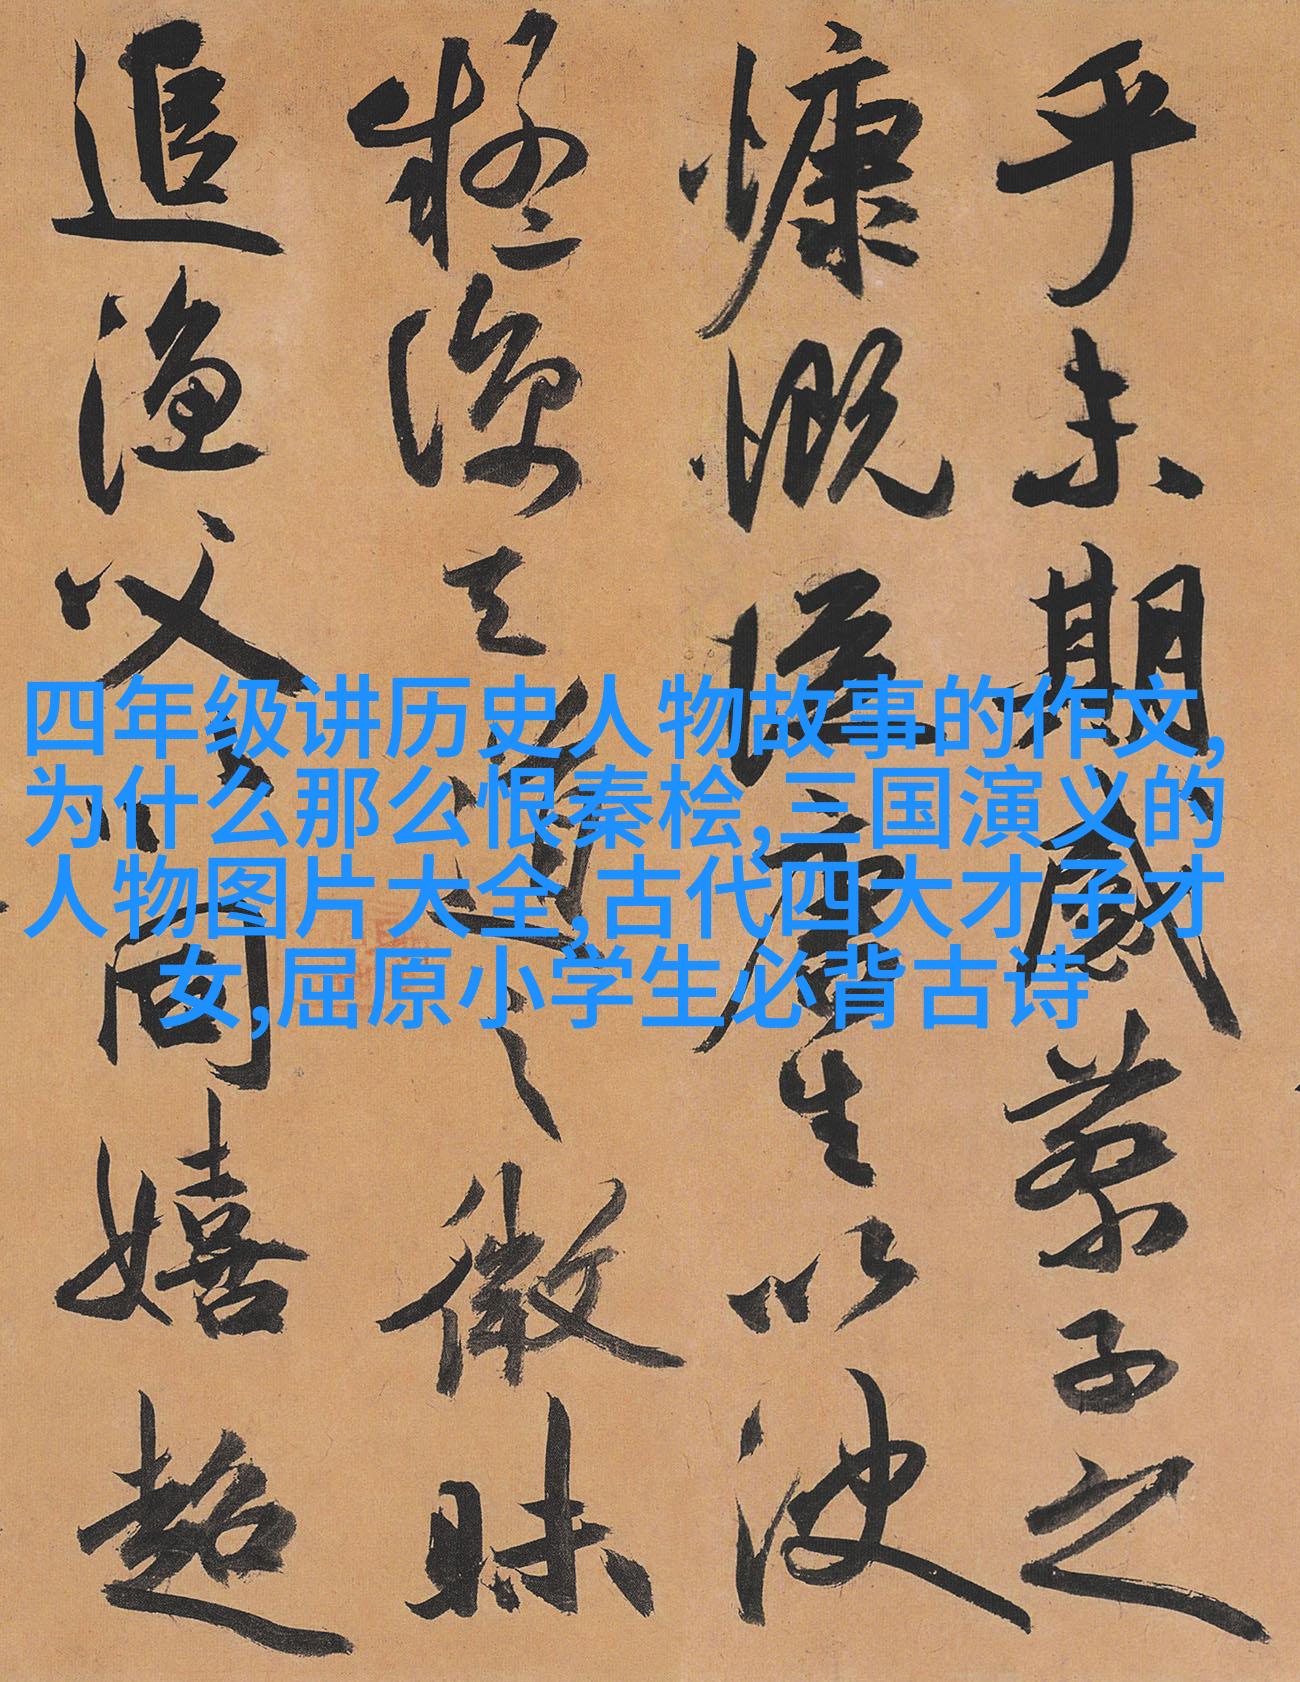 乎未期感蔡子之
慷慨從唐生以決
疑諒天道之微昧
追漁父以同嬉超
四年级讲历史人物故事的作文,
为什么那么恨秦桧,三国演义的
人物图片大全,古代四大才子才
女,屈原小学生必背古诗